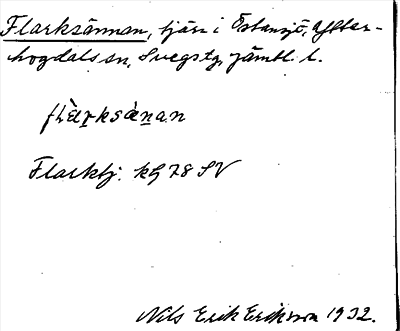 Flarksännan, tjärn i Östansjö, Ytter-
hogdals sn, Svegs tg, Jämtl. l.
Flarktj. kG 78 SV
Nils Erik Eriksson 1932.